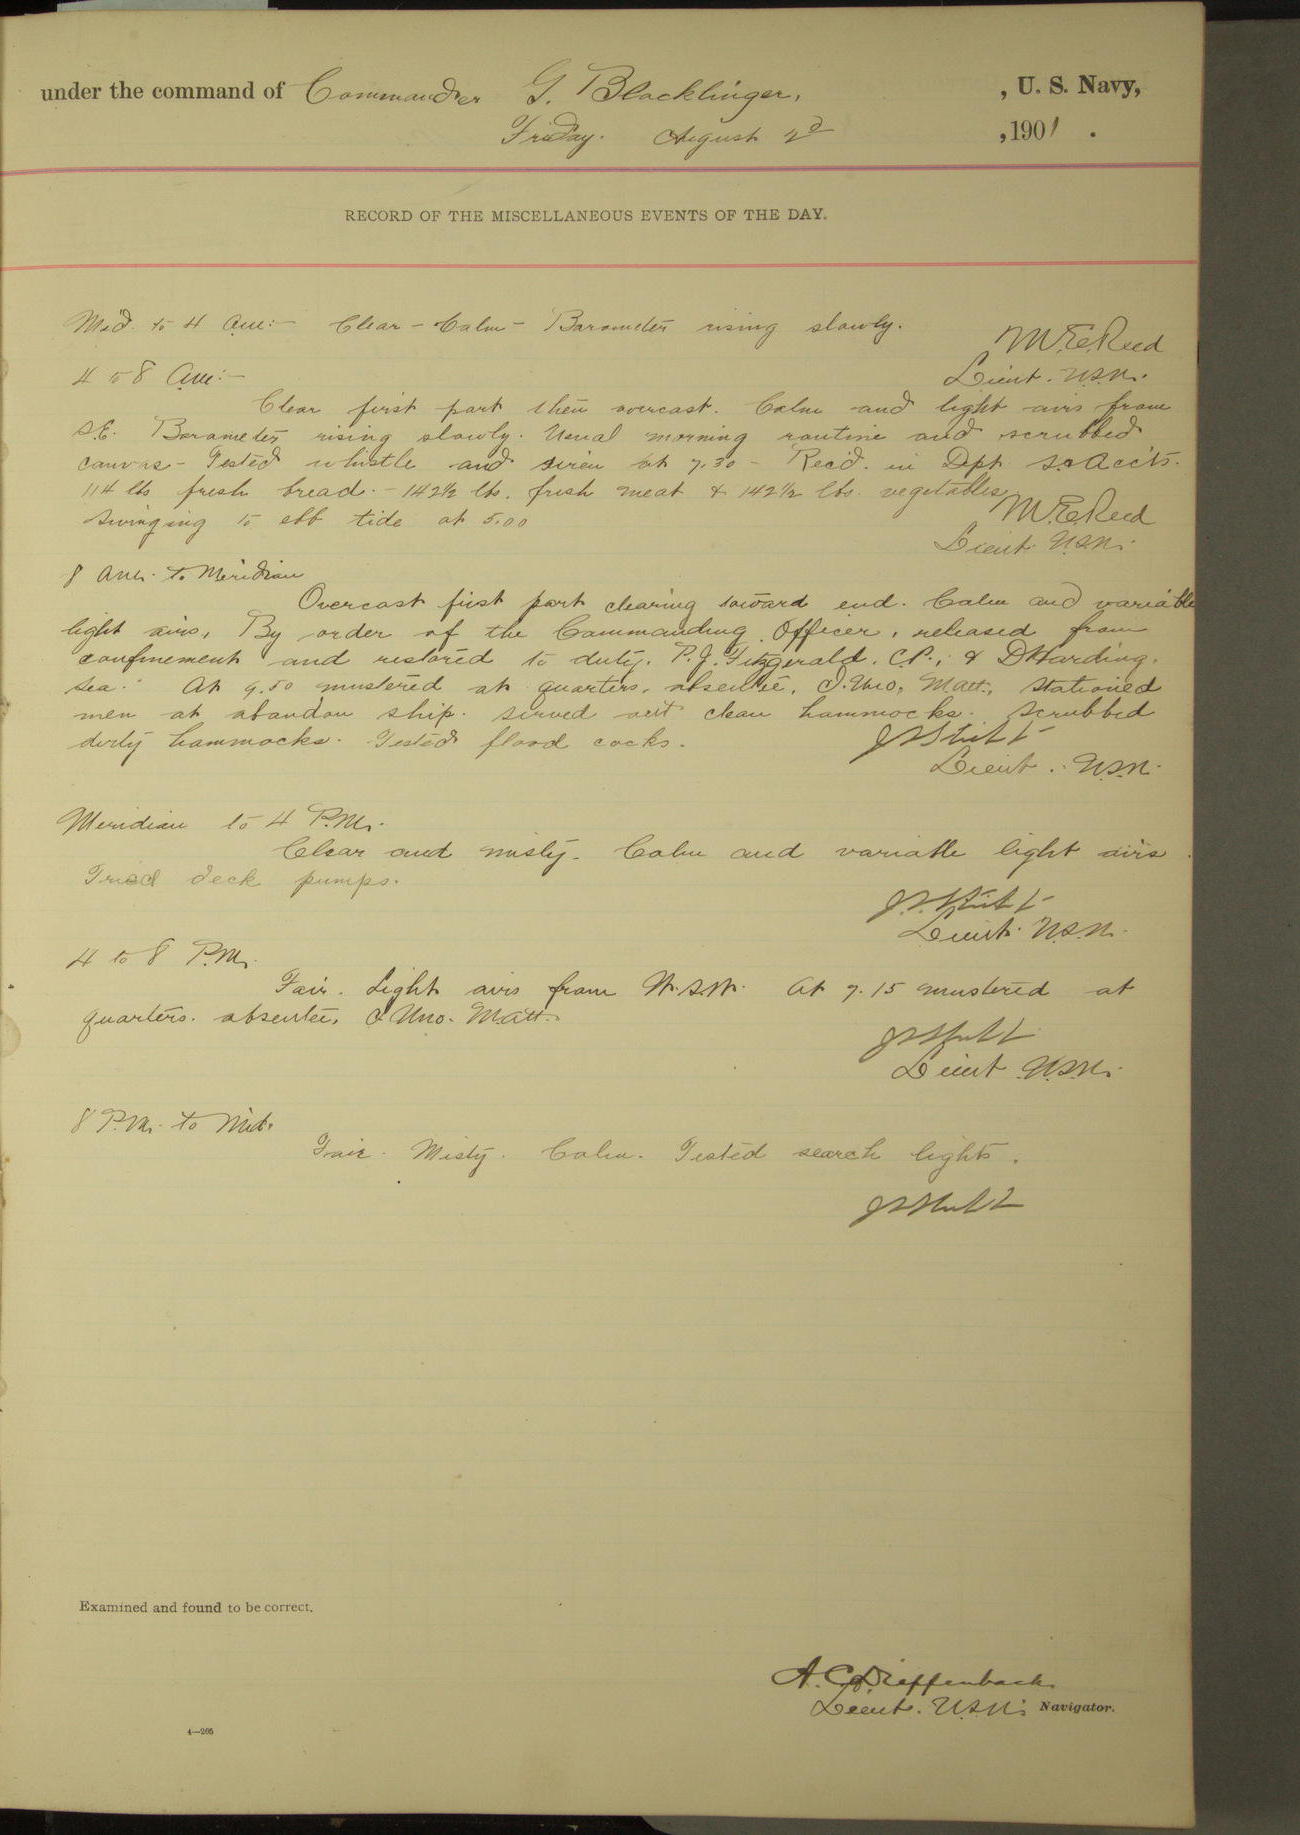 under the command of Commander G. Blocklinger, , U. S. Navy,
Friday. August 2d , 1901 .
RECORD OF THE MISCELLANEOUS EVENTS OF THE DAY.
Mid. to 4 a.m:- Clear - Calm - Barometer rising slowly.
M.E. Reed
Lieut. U.S.N.
4 to 8 a.m:-
Clear first part then overcast. Calm and light airs from
S.E. Barometer rising slowly. Usual morning routine and scrubbed
canvas - Tested whistle and siren at 7.30 - Rec'd. in Dpt. S. & Acc'ts.
114 lbs fresh bread. - 142½ lbs. fresh meat & 142½ lbs. vegetables
Swinging to ebb tide at 5.00
M.E. Reed
Lieut. U.S.N.
8 a.m. to Meridian
Overcast first part clearing toward end. Calm and variable
light airs, By order of the Commanding Officer, released from
confinement and restored to duty. P.J. Fitzgerald, C.P., & D Harding.
Sea. At 9.50 mustered at quarters, absentee, I. Uno, Matt., Stationed
men at abandon ship. Served out clean hammocks. Scrubbed
dirty hammocks. Tested flood cocks.
Lieut. U.S.N.
Meridian to 4 P.M.
Clear and misty. Calm and variable light airs
Tried deck pumps.
Lieut. U.S.N.
4 to 8 P.M.
Fair. Light airs from W.S.W. At 7.15 mustered at
quarters. absentee, I Uno. Matt.
Lieut U.S.N.
8 P.M. to Mid.
Fair. Misty. Calm. Tested search lights.
Examined and found to be correct.
A. C. Dieffenbach
Lieut. U.S.N. Navigator.
4—205